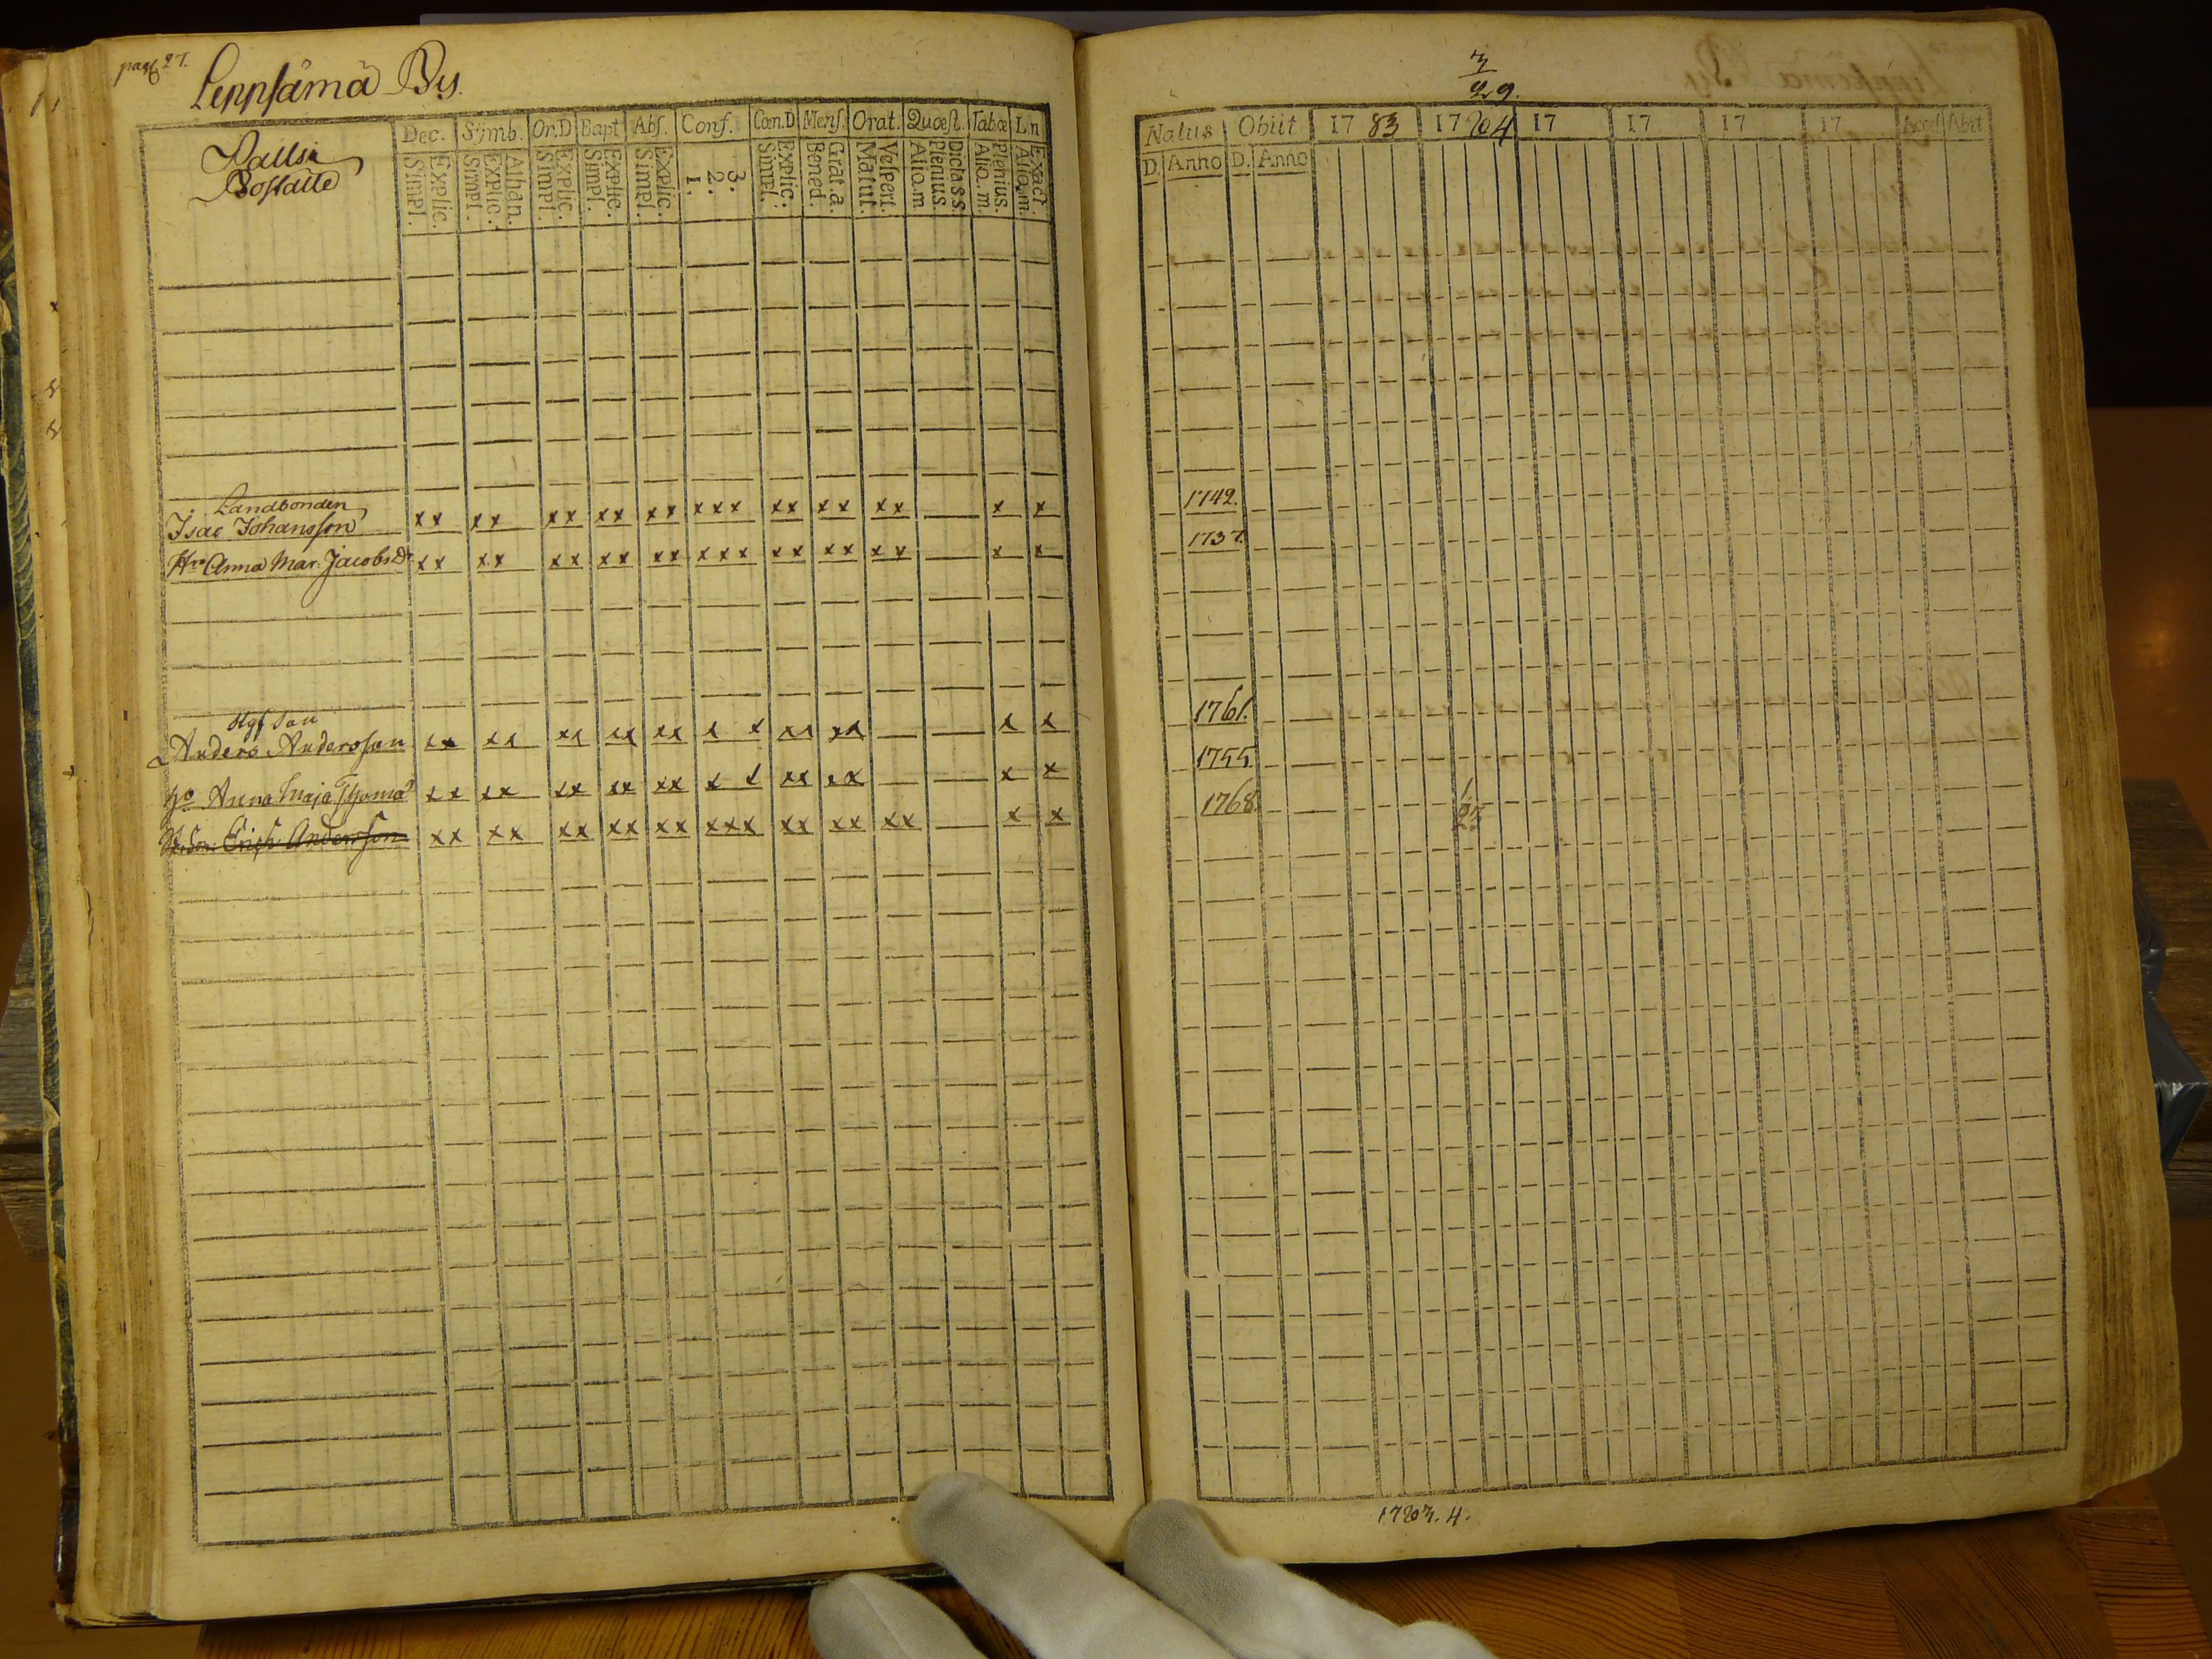 pag 27.
Leppsämä By.
Dec. Symb. Or.D Bapt Abs. Conf. Cœn.D Mens. Orat. Quæst. Tab.œ L'n
Simpl. Explic. Simpl. Explic. Athan. Simpl. Explic. Simpl. Explic. Simpl. Explic. 1. 2. 3. Simpl. Explic: Bened. Grat. a. Matut. Vespert. Alio. m Plenius. Dicta s s. Alio. m. Plenius. Alio. m. Exact.
Boställe
Landbonden
Isac Johansson x x x x x x x x x x x x x x x x x x x x x x x
Hro Anna Mar. Jacobsdr x x x x x x x x x x x x x x x x x x x x x
Anders Andersson x x x x x x x x x x x x x x x x x x
Ho Anna Maja Thomæ x x x x x x x x x x x x x x x x x x
Erich Andersson x x x x x x x x x x x x x x x x x x x x x
3
29.
Natus Obiit 17 83 17 84 17 17 17 17 Acced Abiit
D. Anno D. Anno
1742.
1737.
1761.
1755.
1768.
1
25
1783. 4.